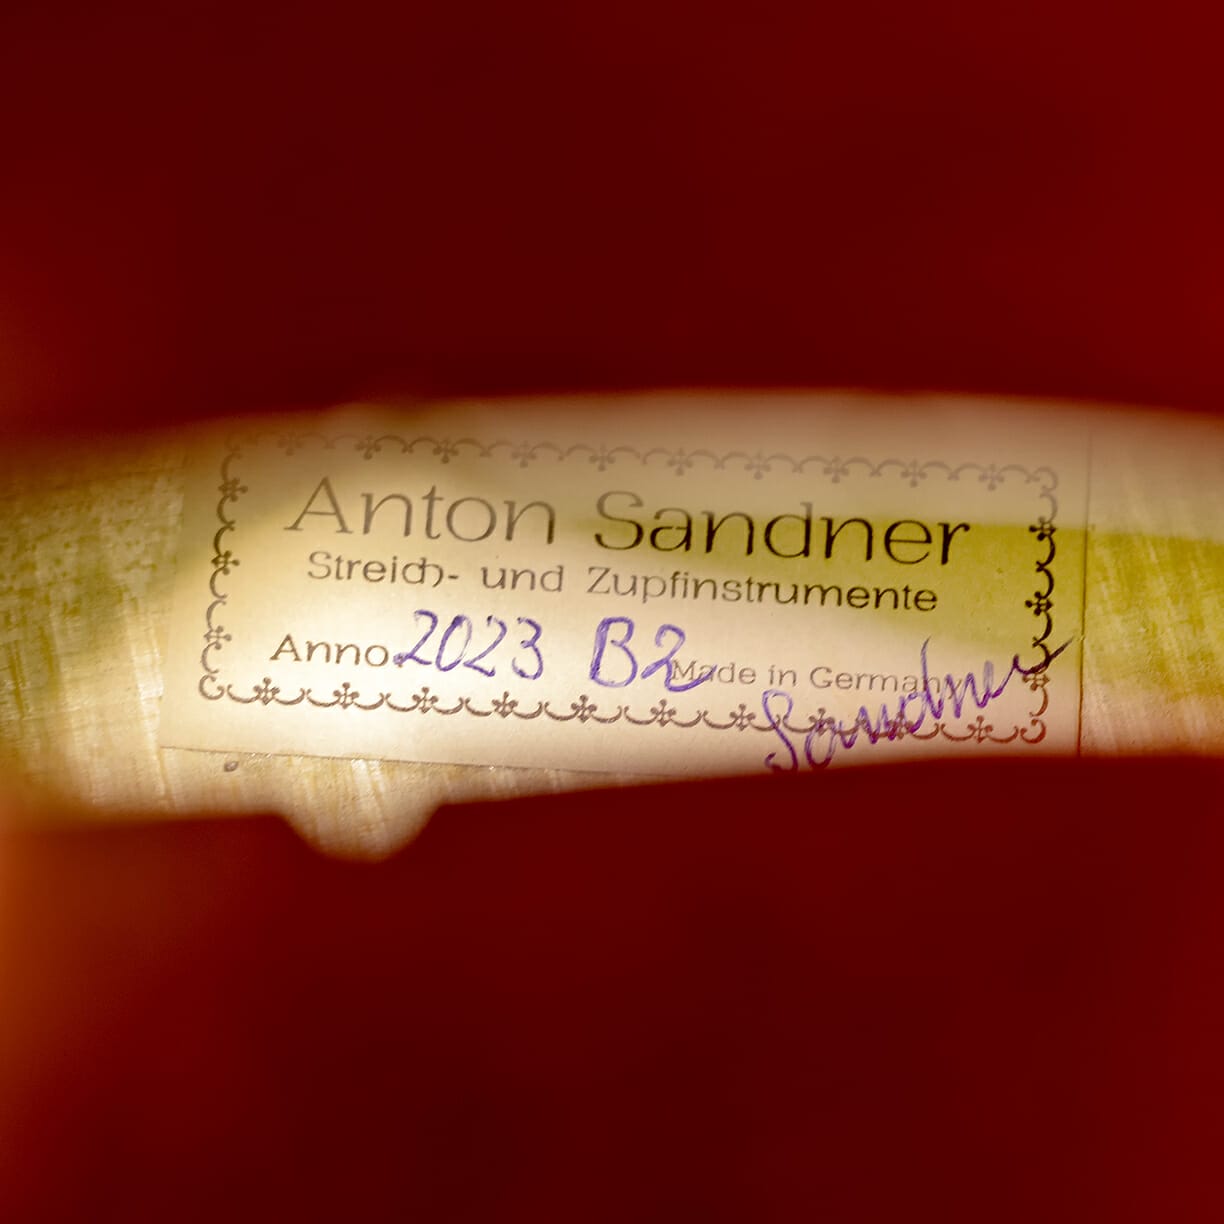 Anton Sandner
Streich- und Zupfinstrumente
Anno 2023 B2 Made in Germany
Sandner